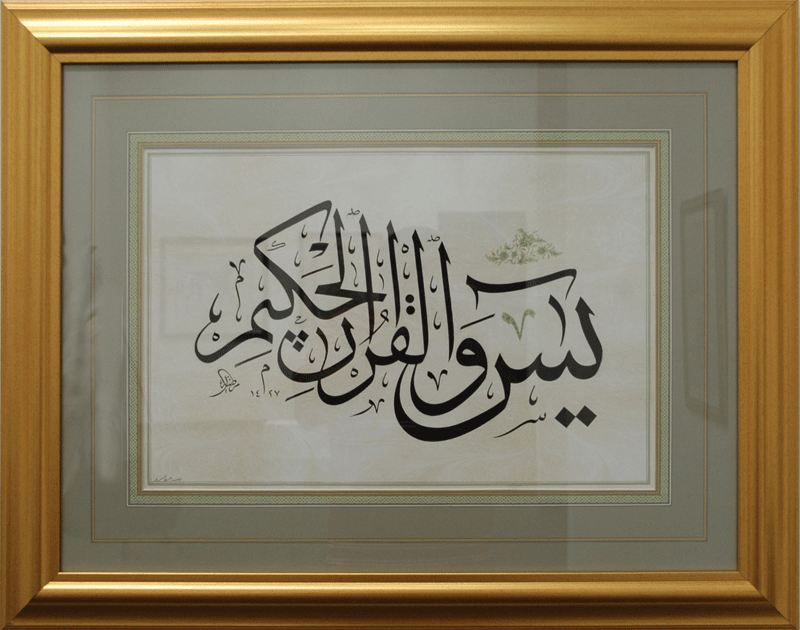 يس وَالْقُرْآنِ الْحَكِيمِ
١٤٢٧